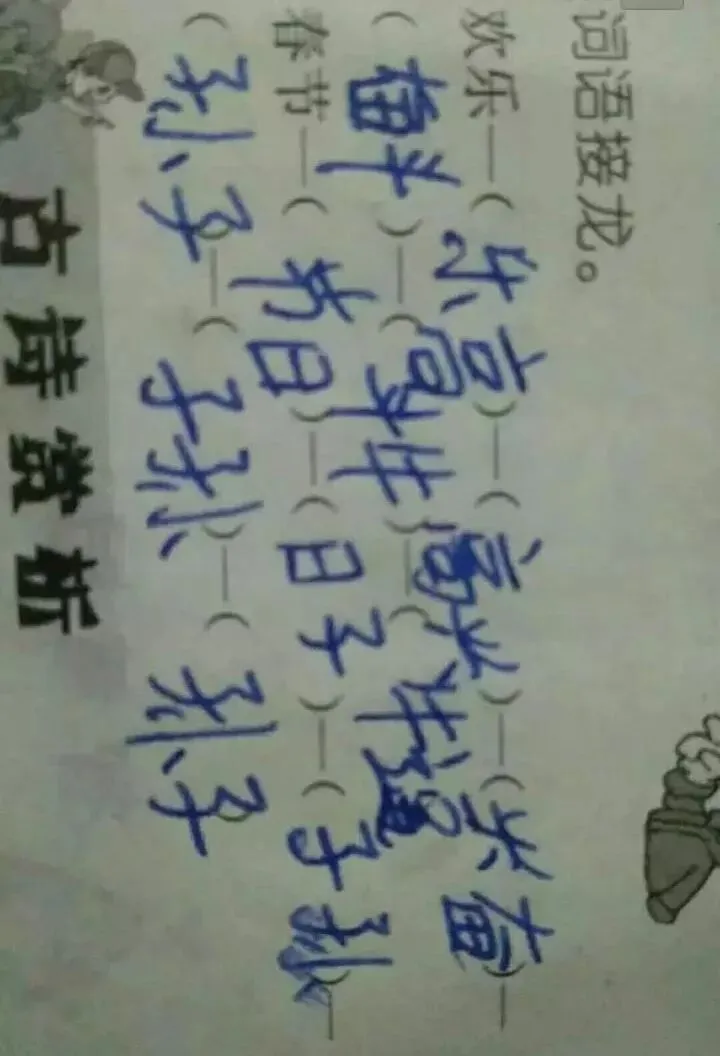 词语接龙。
欢乐—(乐高)—(高兴)—(兴奋)—
(奋斗)—(斗牛)—(牛逼)
春节—(节日)—(日子)—(子孙)—
(孙子)—(子孙)—(孙子)
古诗赏析